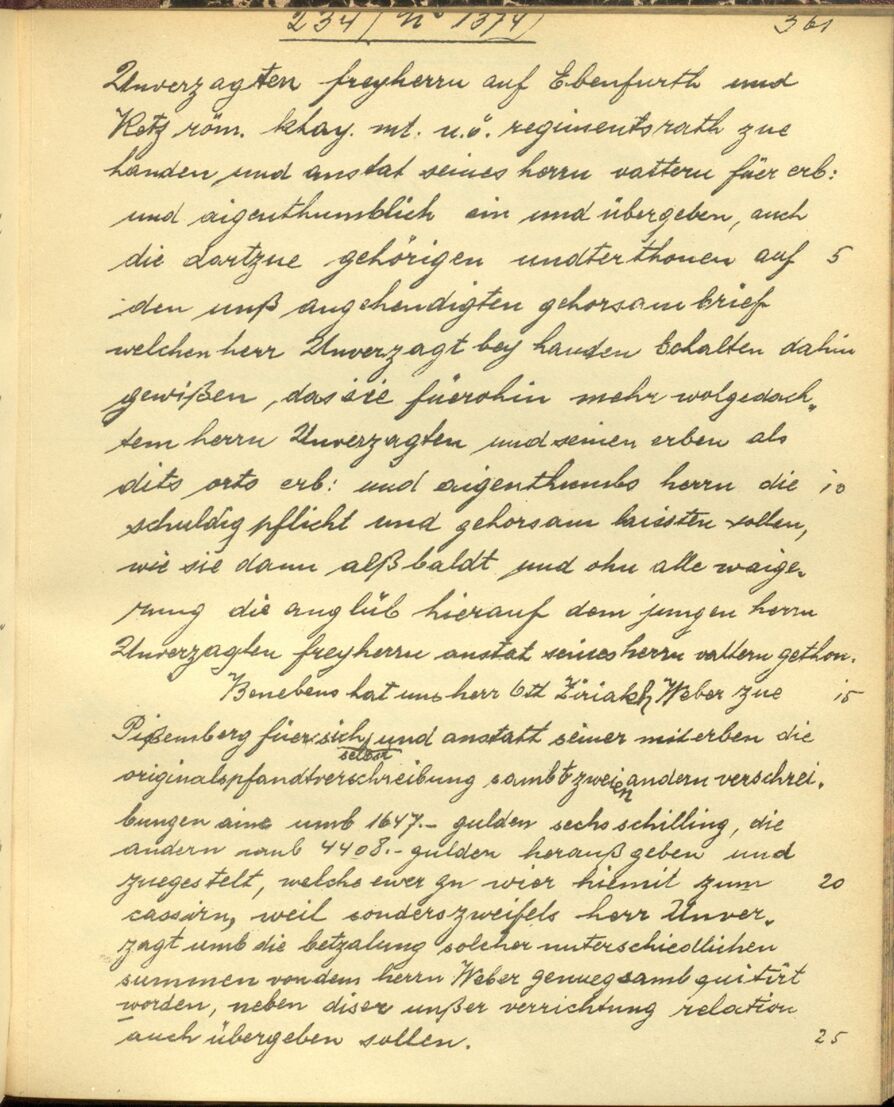 234 / Nº 1374) 361
Unverzagten freyherrn auf Ebenfurth und
Retz röm. khay. mt. n.ö. regimentsrath zue
handen und anstat seines herrn vattern füer erb:
und aigenthumblich ein und übergeben, auch
die dartzue gehörigen undterthonen auf 5
den unß angehendigten gehorsambrief
welchen herr Unverzagt bey handen behalten dahin
gewißen, das sie füerohin mehr wolgedach„
tem herrn Unverzagten und seinen erben als
dits orts erb: und aigenthumbs herrn die 10
schuldig pflicht und gehorsam laissten sollen,
wie sie dann alßbaldt und ohn alle waige„
rung die anglüb hierauf dem jungen herrn
Unverzagten freyherrn anstat seines herrn vattern gethon.
Benebens hat uns herr Ott Ziriakh Weber zue 15
Pißemberg füer sich selbst und anstatt seiner miterben die
originalpfandtverschreibung sambt zweien andern verschrei„
bungen aine umb 1647.- gulden sechs schilling, die
andern umb 4408.- gulden herauß geben und
zuegestelt, welche ewer gn wier hiemit zum 20
cassirn, weil sonders zweifels herr Unver„
zagt umb die betzalung solcher unterschiedlichen
summen von dem herrn Weber genuegsamb quitirt
worden, neben diser unßer verrichtung relation
auch übergeben sollen. 25